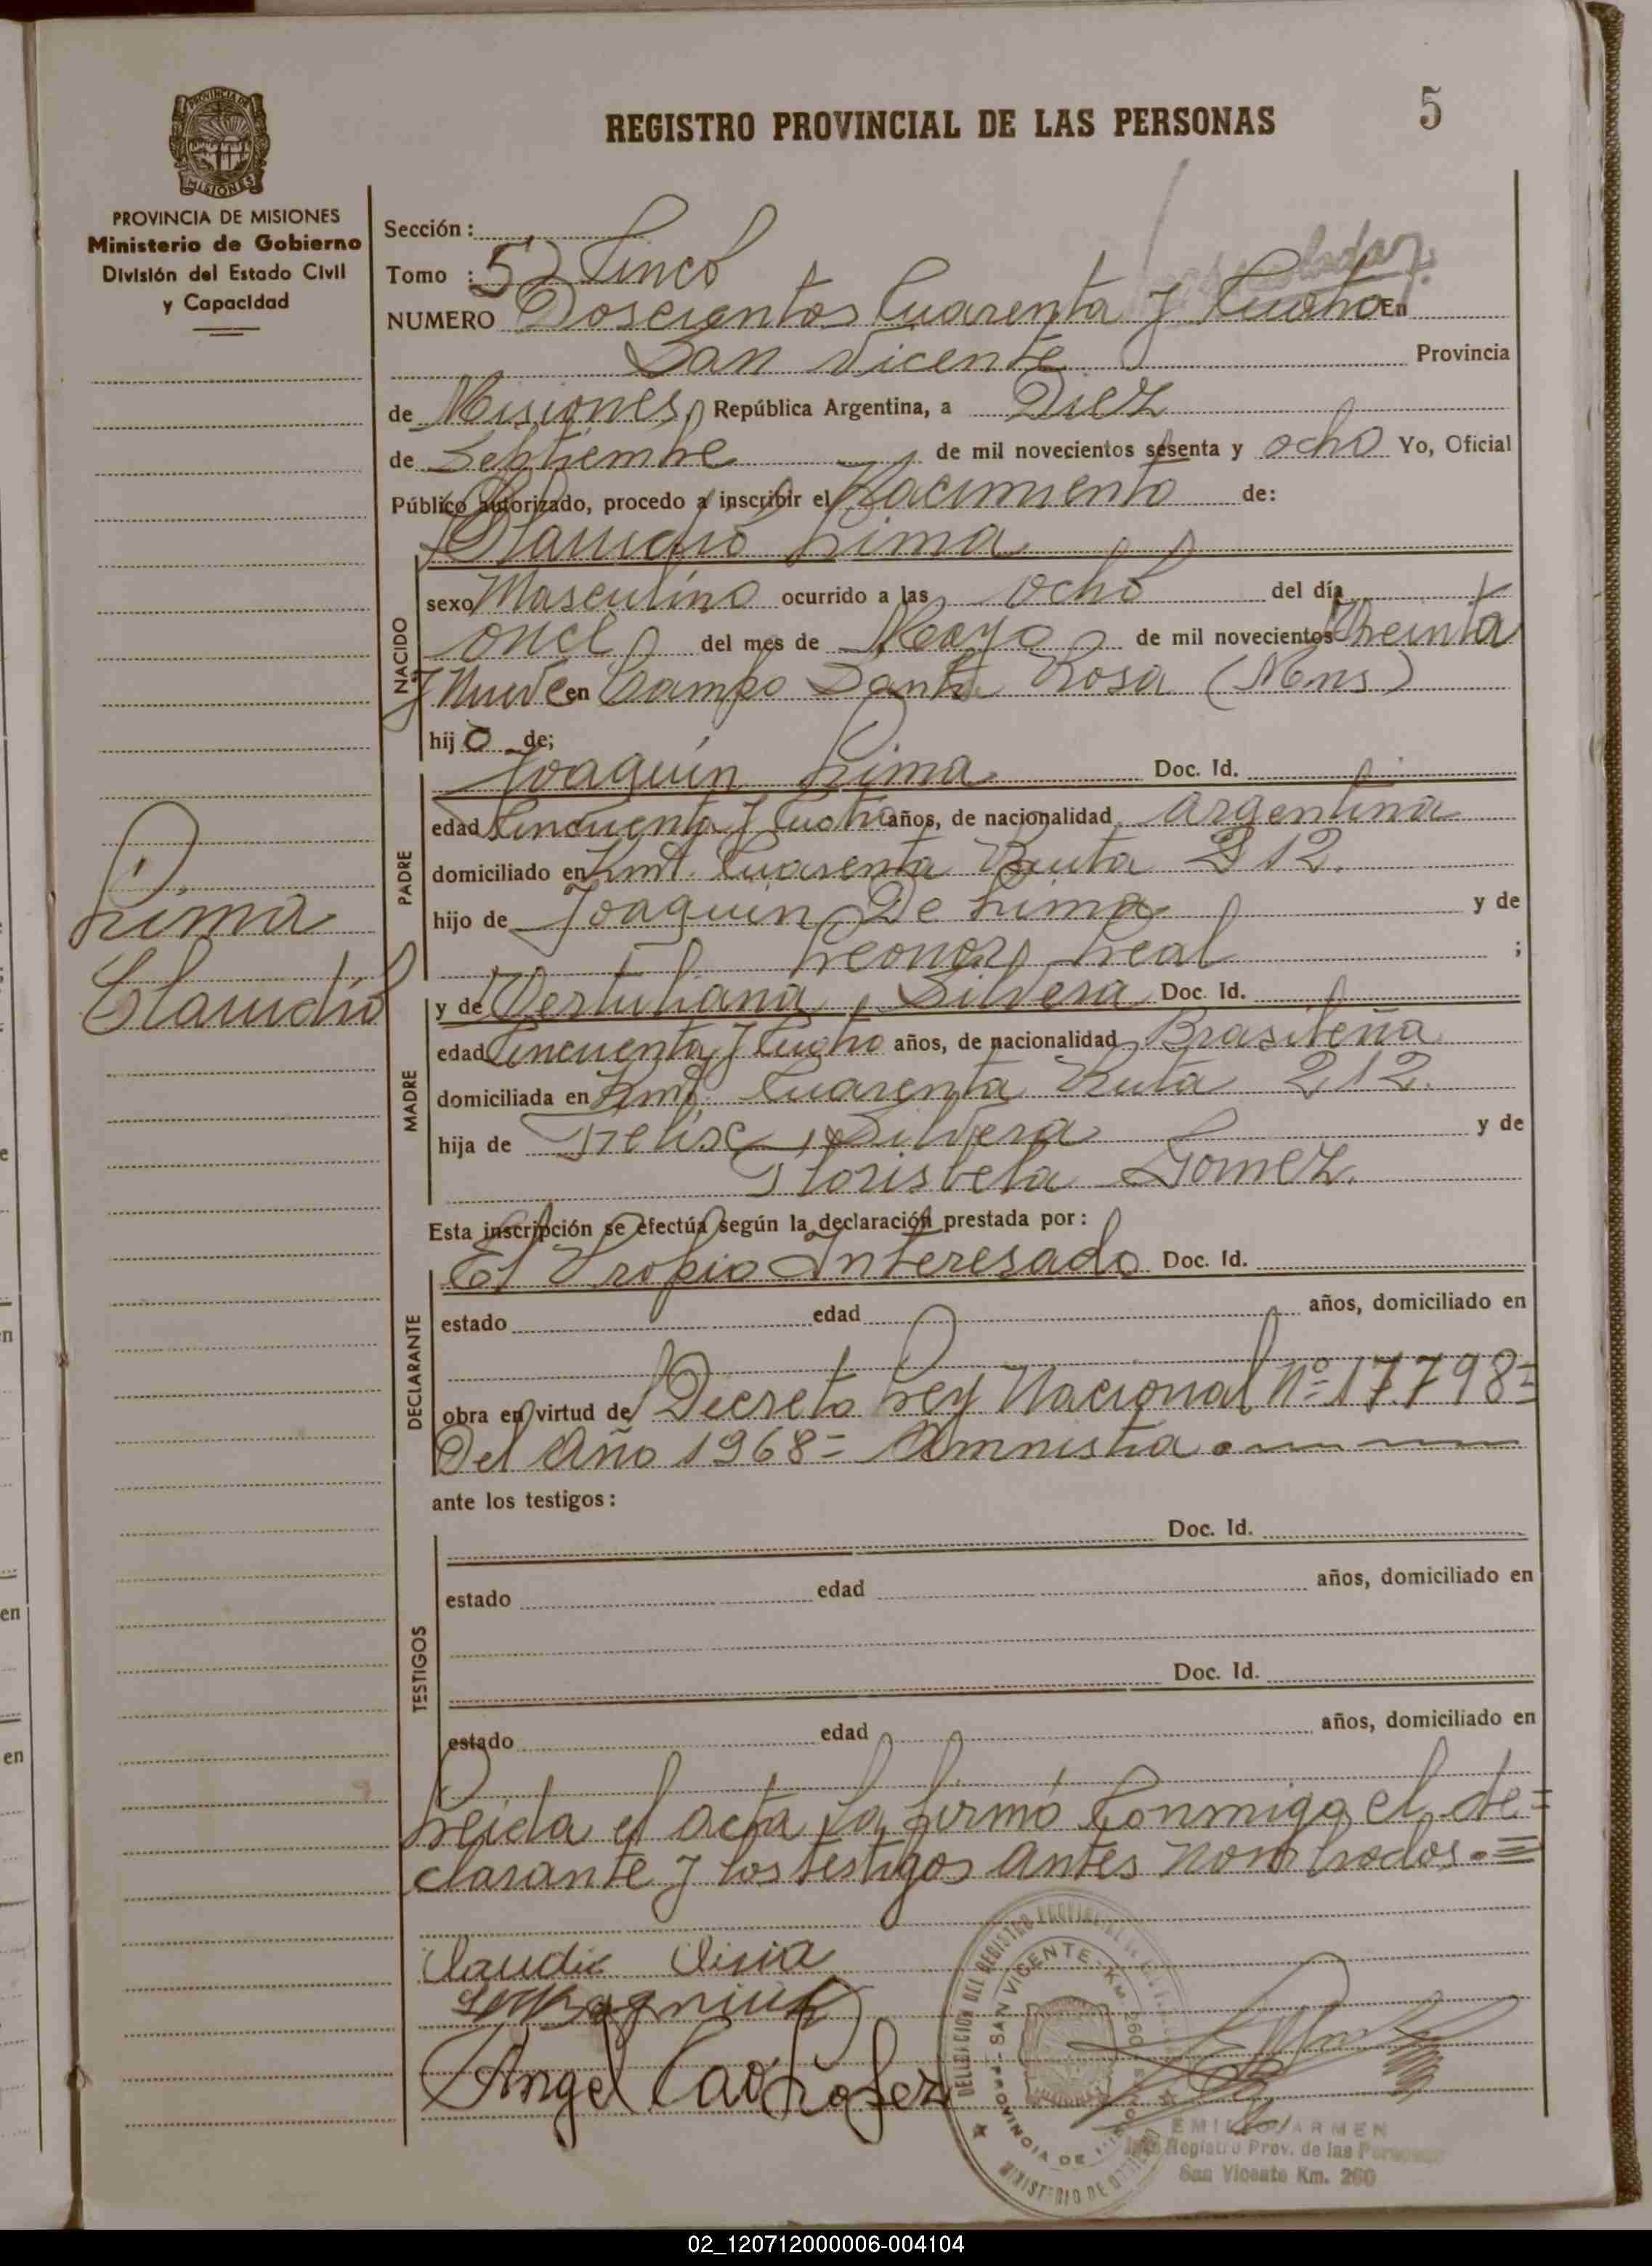 REGISTRO PROVINCIAL DE LAS PERSONAS
5
PROVINCIA DE MISIONES
PROVINCIA DE MISIONES
Ministerio de Gobierno
División del Estado Civil
y Capacidad
Sección :
Tomo : 5) Cinco
NUMERO Doscientos Cuarenta y Cuatro En
San Vicente Provincia
de Misiones, República Argentina, a Diez
de Septiembre de mil novecientos sesenta y ocho Yo, Oficial
Público autorizado, procedo a inscribir el Nacimiento de:
Claudio Lima
NACIDO
sexo Masculino ocurrido a las ocho del día
once del mes de Mayo de mil novecientos Treinta
y Nueve en Campo Santa Rosa (Mns)
hijo de;
PADRE
Joaquin Lima Doc. Id.
edad Cincuenta y Cuatro años, de nacionalidad Argentina
domiciliado en Kmt. Cuarenta Ruta 212.
hijo de Joaquin De Lima y de
Leonora Leal ;
Lima
Claudio
MADRE
y de Vertuliana Silvera Doc. Id.
edad Cincuenta y Cuatro años, de nacionalidad Brasileña
domiciliada en Kmt. Cuarenta Ruta 212.
hija de Felise Silvera y de
Florisbela Gomez.
Esta inscripción se efectúa según la declaración prestada por :
DECLARANTE
El Propio Interesado Doc. Id.
estado edad años, domiciliado en
obra en virtud de Decreto Ley Nacional Nº 17.798=
Del Año 1968= Amnistia.
ante los testigos :
TESTIGOS
Doc. Id.
estado edad años, domiciliado en
Doc. Id.
estado edad años, domiciliado en
Leida el acta la firmó Conmigo el de=
clarante y los testigos antes nombrados.=
Claudio Lima
Angel
DELEGACION DEL REGISTRO PROVINCIAL
SAN VICENTE - KM. 260
PROVINCIA DE MISIONES
MINISTERIO DE GOBIERNO
Registro Prov. de las Personas
San Vicente Km. 260
02_120712000006-004104